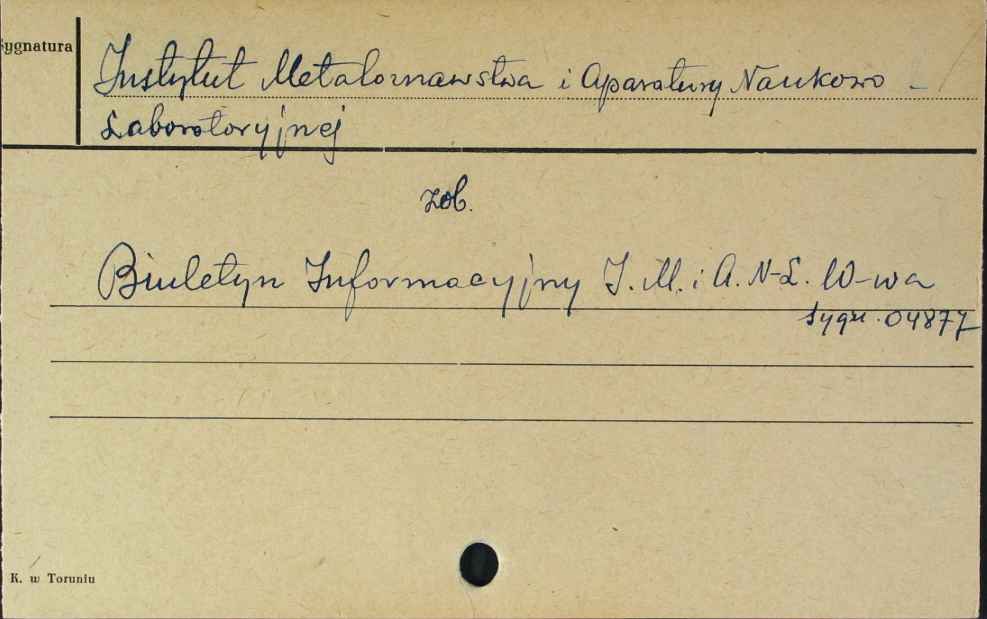 Sygnatura
Instytut Metaloznawstwa i Aparatury Naukowo -
Laboratoryjnej
zob.
Biuletyn Informacyjny I. M. i A. N-L. W-wa
sygn. 04877
K. w Toruniu